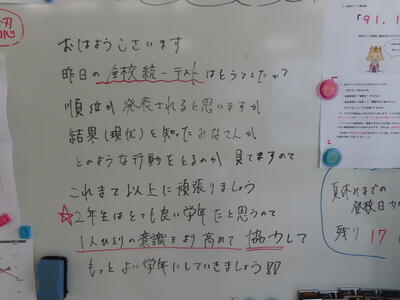 おはようございます
昨日の全校統一テストはどうでしたか?
順位が発表されると思いますが
結果(現状)を知ったみなさんが
どのような行動をとるのか 見てますので
これまで以上に頑張りましょう
☆2年生はとても良い学年だと思うので
1人ひとりの意識をより高めて協力して
もっとよい学年にしていきましょう!!
「91.1
夏休みまでの
登校日カ
残り 17